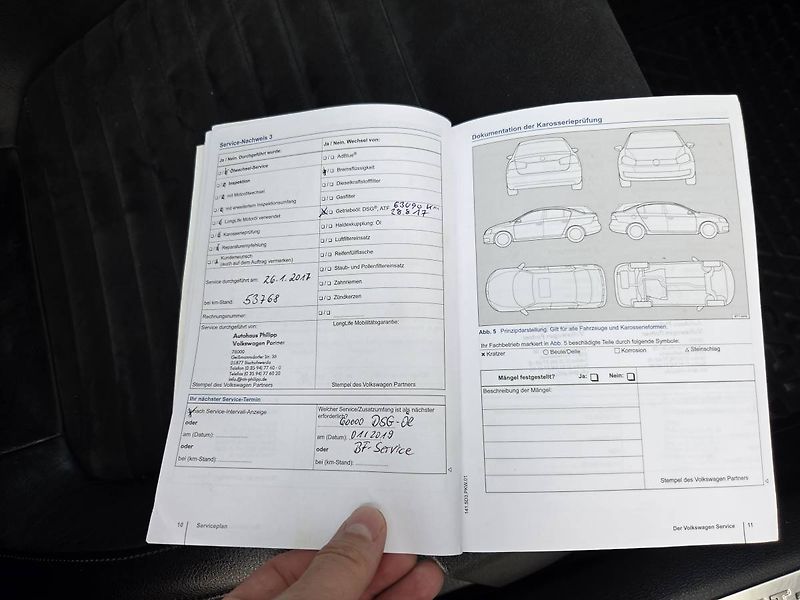 Service-Nachweis 3
Ja / Nein. Durchgeführt wurde:
Ölwechsel-Service
Inspektion
mit Motorölwechsel
mit erweitertem Inspektionsumfang
LongLife Motoröl verwendet
Karosserieprüfung
Reparaturempfehlung
Kundenwunsch
(auch auf dem Auftrag vermerken)
Service durchgeführt am: 26.1.2017
bei km-Stand: 53768
Rechnungsnummer:
Service durchgeführt von:
Autohaus Philipp
Volkswagen Partner
Stempel des Volkswagen Partners
Ja / Nein. Wechsel von:
AdBlue®
Bremsflüssigkeit
Dieselkraftstofffilter
Gasfilter
Getriebeöl: DSG®, ATF 63090 km
28.8.17
Haldexkupplung: Öl
Luftfiltereinsatz
Reifenfüllflasche
Staub- und Pollenfiltereinsatz
Zahnriemen
Zündkerzen
LongLife Mobilitätsgarantie:
Stempel des Volkswagen Partners
Ihr nächster Service-Termin
nach Service-Intervall-Anzeige
oder
am (Datum):
oder
bei (km-Stand):
Welcher Service/Zusatzumfang ist als nächster
erforderlich?
60000 DSG-Öl
am (Datum): 01/2019
oder BF-Service
bei (km-Stand):
10 Serviceplan
Dokumentation der Karosserieprüfung
Abb. 5 Prinzipdarstellung. Gilt für alle Fahrzeuge und Karosserieformen.
Ihr Fachbetrieb markiert in Abb. 5 beschädigte Teile durch folgende Symbole:
x Kratzer ○ Beule/Delle □ Korrosion △ Steinschlag
Mängel festgestellt? Ja: Nein:
Beschreibung der Mängel:
Stempel des Volkswagen Partners
141.5D3.PKW.01
Der Volkswagen Service 11